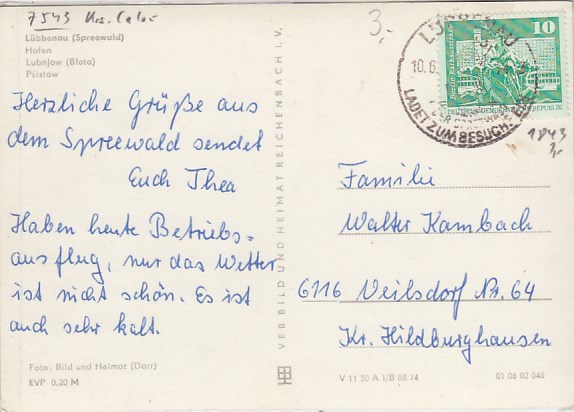 7543 Krs. Calau
3,-
Lübbenau (Spreewald)
Hafen
Lubnjow (Błota)
Pśistaw
Herzliche Grüße aus
dem Spreewald sendet
Euch Thea
Haben heute Betriebs=
ausflug, nur das Wetter
ist nicht schön. Es ist
auch sehr kalt.
Foto: Bild und Heimat (Darr)
EVP 0,20 M
VEB BILD UND HEIMAT REICHENBACH I. V.
10
LÜBBENAU
10.6.
LADET ZUM BESUCH
1843
3,-
Familie
Walter Kambach
6116 Veilsdorf Nr. 64
Kr. Hildburghausen
V 11 50 A 1/B 68 74
01 06 02 048